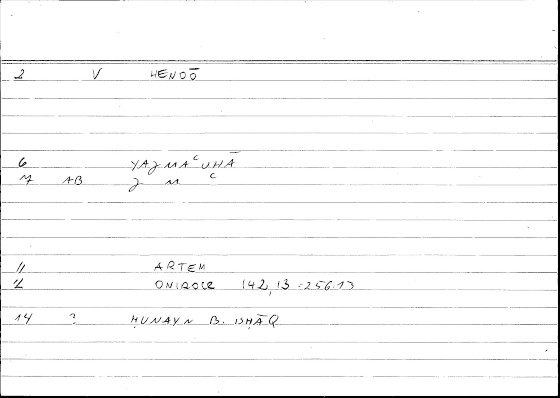 2 V HENDŌ
6 YAJMAʿUHĀ
7 AB J M ʿ
11 ARTEM
12 ONIROCR 142,13 = 256.13
14 ? ḤUNAYN B. ISḤĀQ